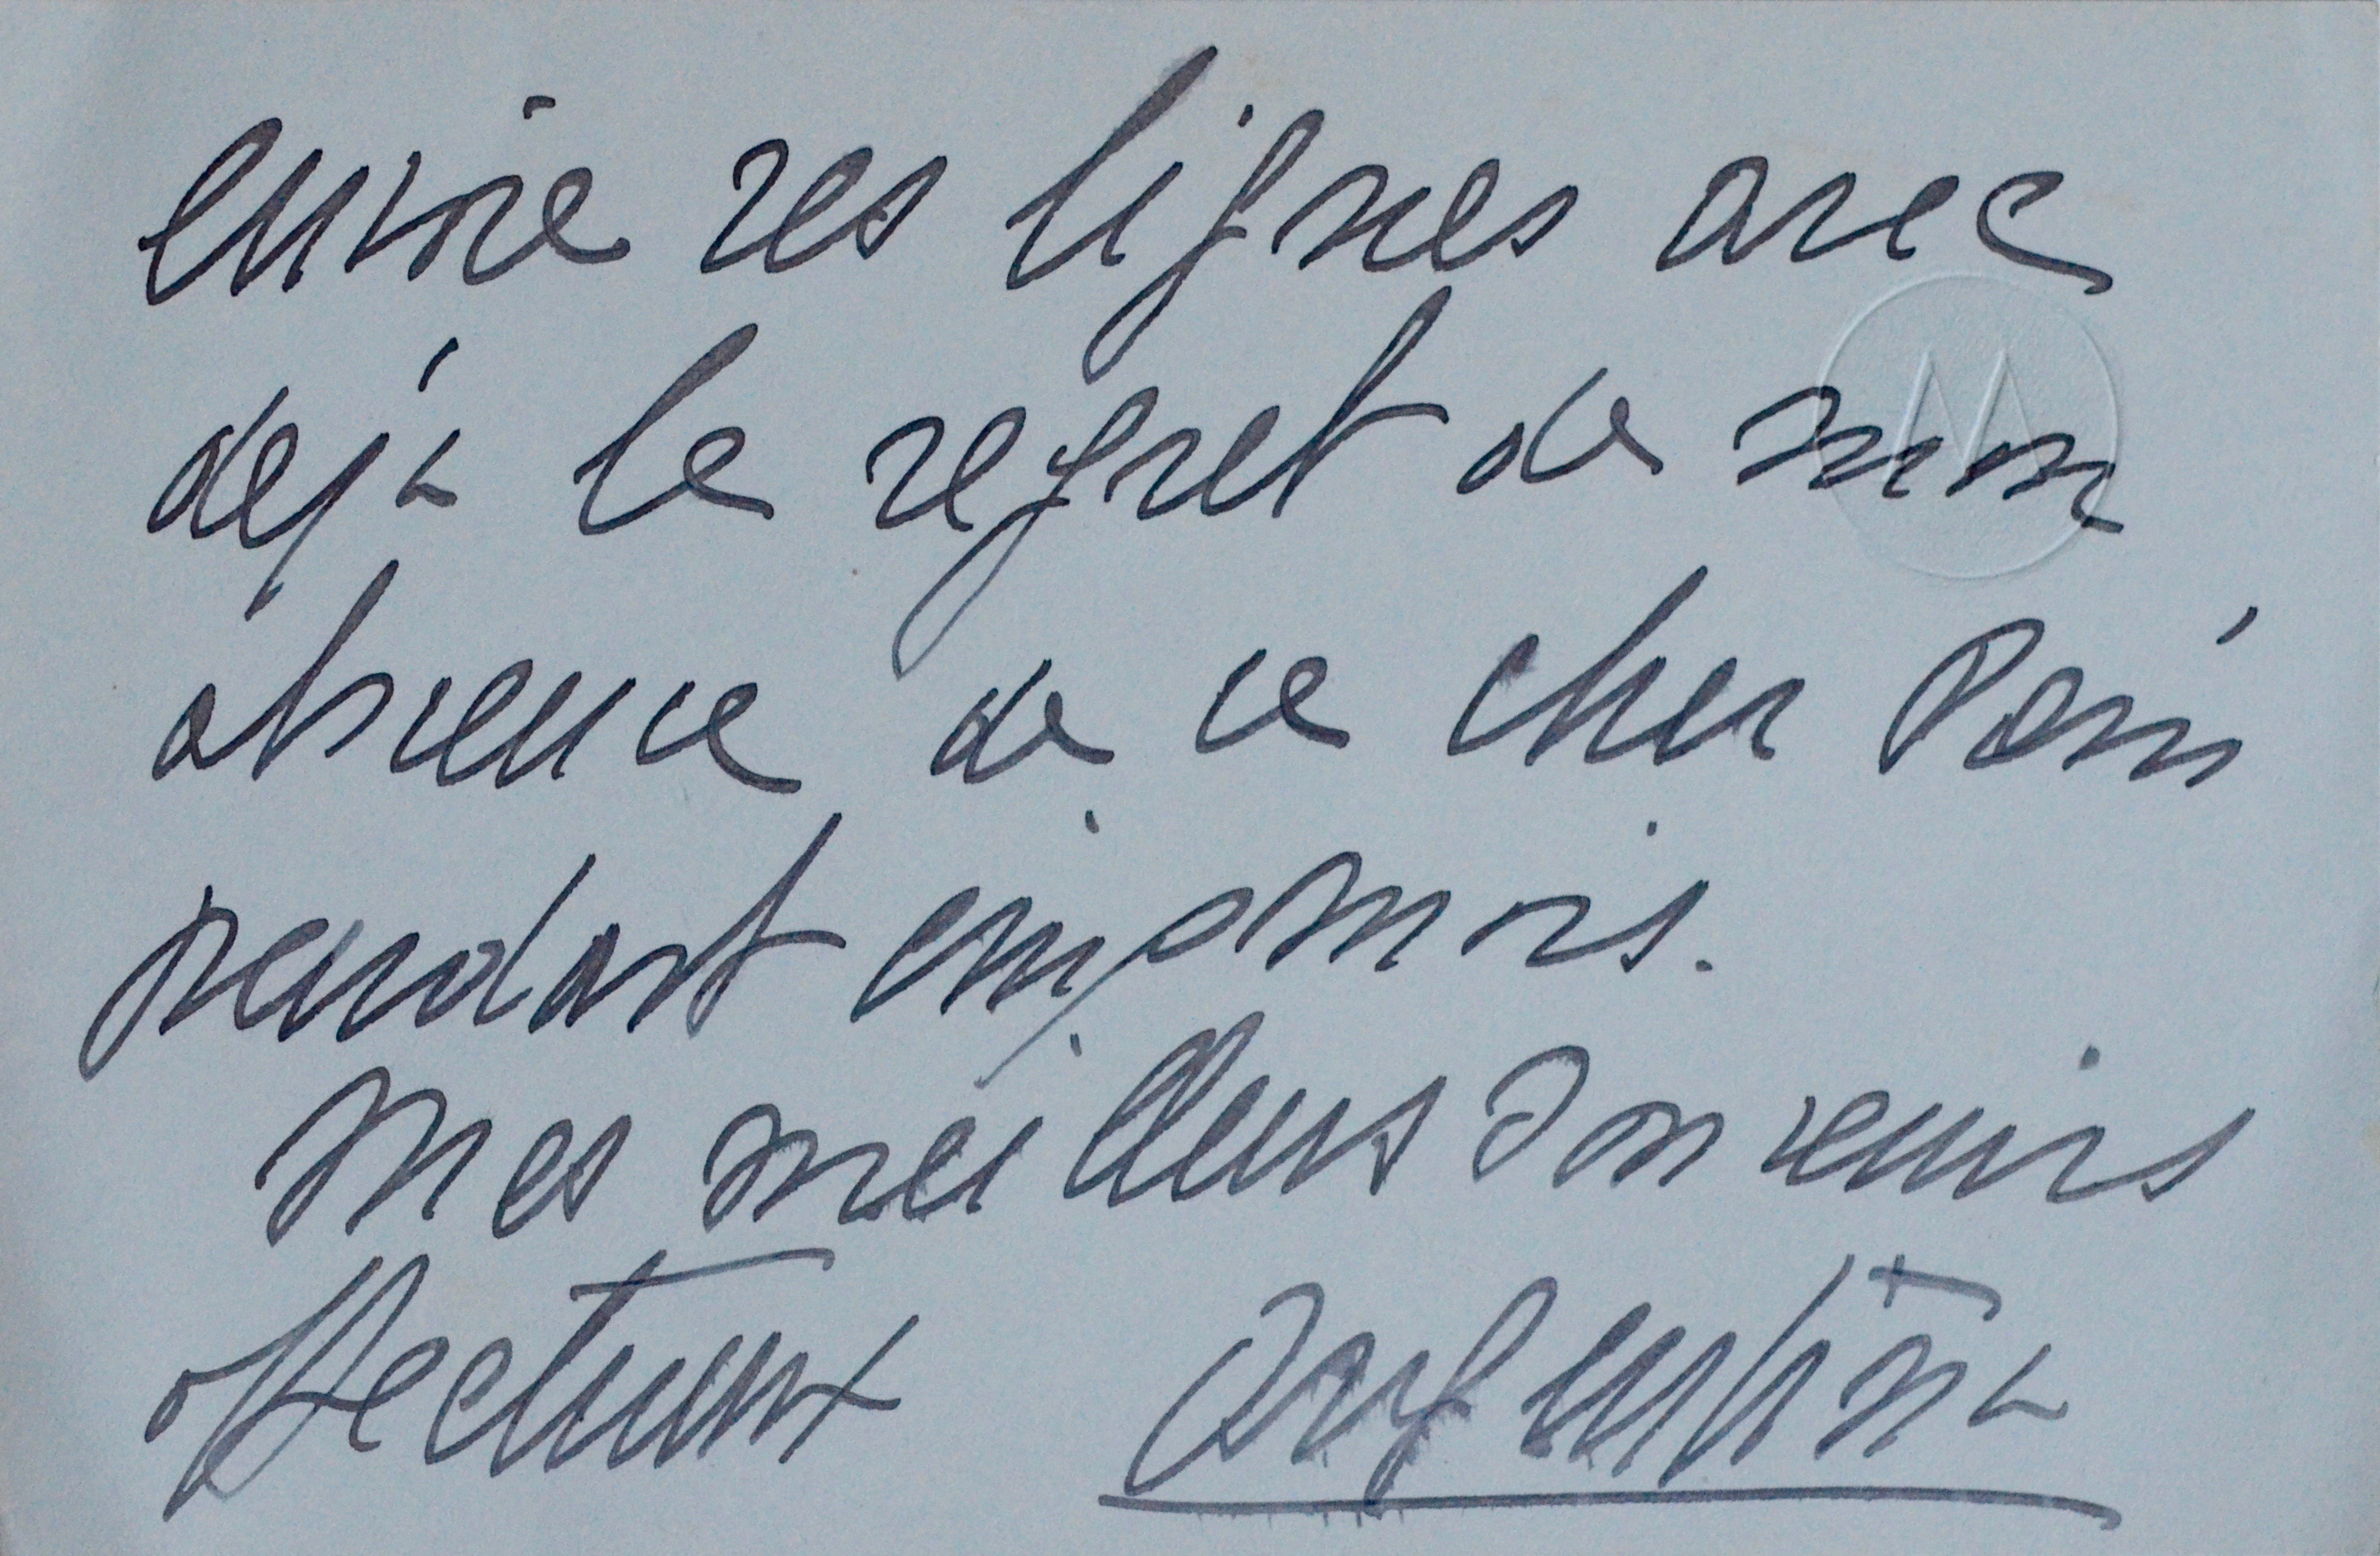 envoie ces lignes avec
déjà le regret de mon
absence de ce cher Paris
pendant cinq mois.
Mes meilleurs souvenirs
affectueux Argentina